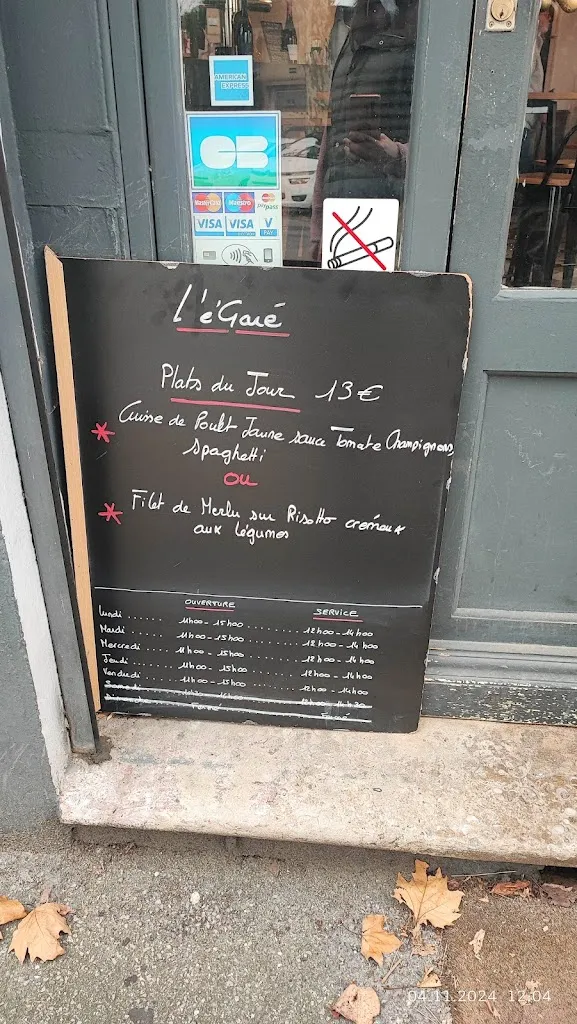 AMERICAN
EXPRESS
CB
MasterCard Maestro paypass
VISA VISA V
PAY
l'éGaré
Plats du Jour 13€
* Cuisse de Poulet Jaune sauce Tomate Champignons
Spaghetti
ou
* Filet de Merlu sur Risotto crémeux
aux légumes
OUVERTURE SERVICE
Lundi ........ 11h00 - 15h00 ........ 12h00 - 14h00
Mardi ........ 11h00 - 15h00 ........ 12h00 - 14h00
Mercredi ........ 11h00 - 15h00 ........ 12h00 - 14h00
Jeudi ........ 11h00 - 15h00 ........ 12h00 - 14h00
Vendredi ........ 11h00 - 15h00 ........ 12h00 - 14h00
Samedi
Fermé Fermé
04.11.2024 12:04